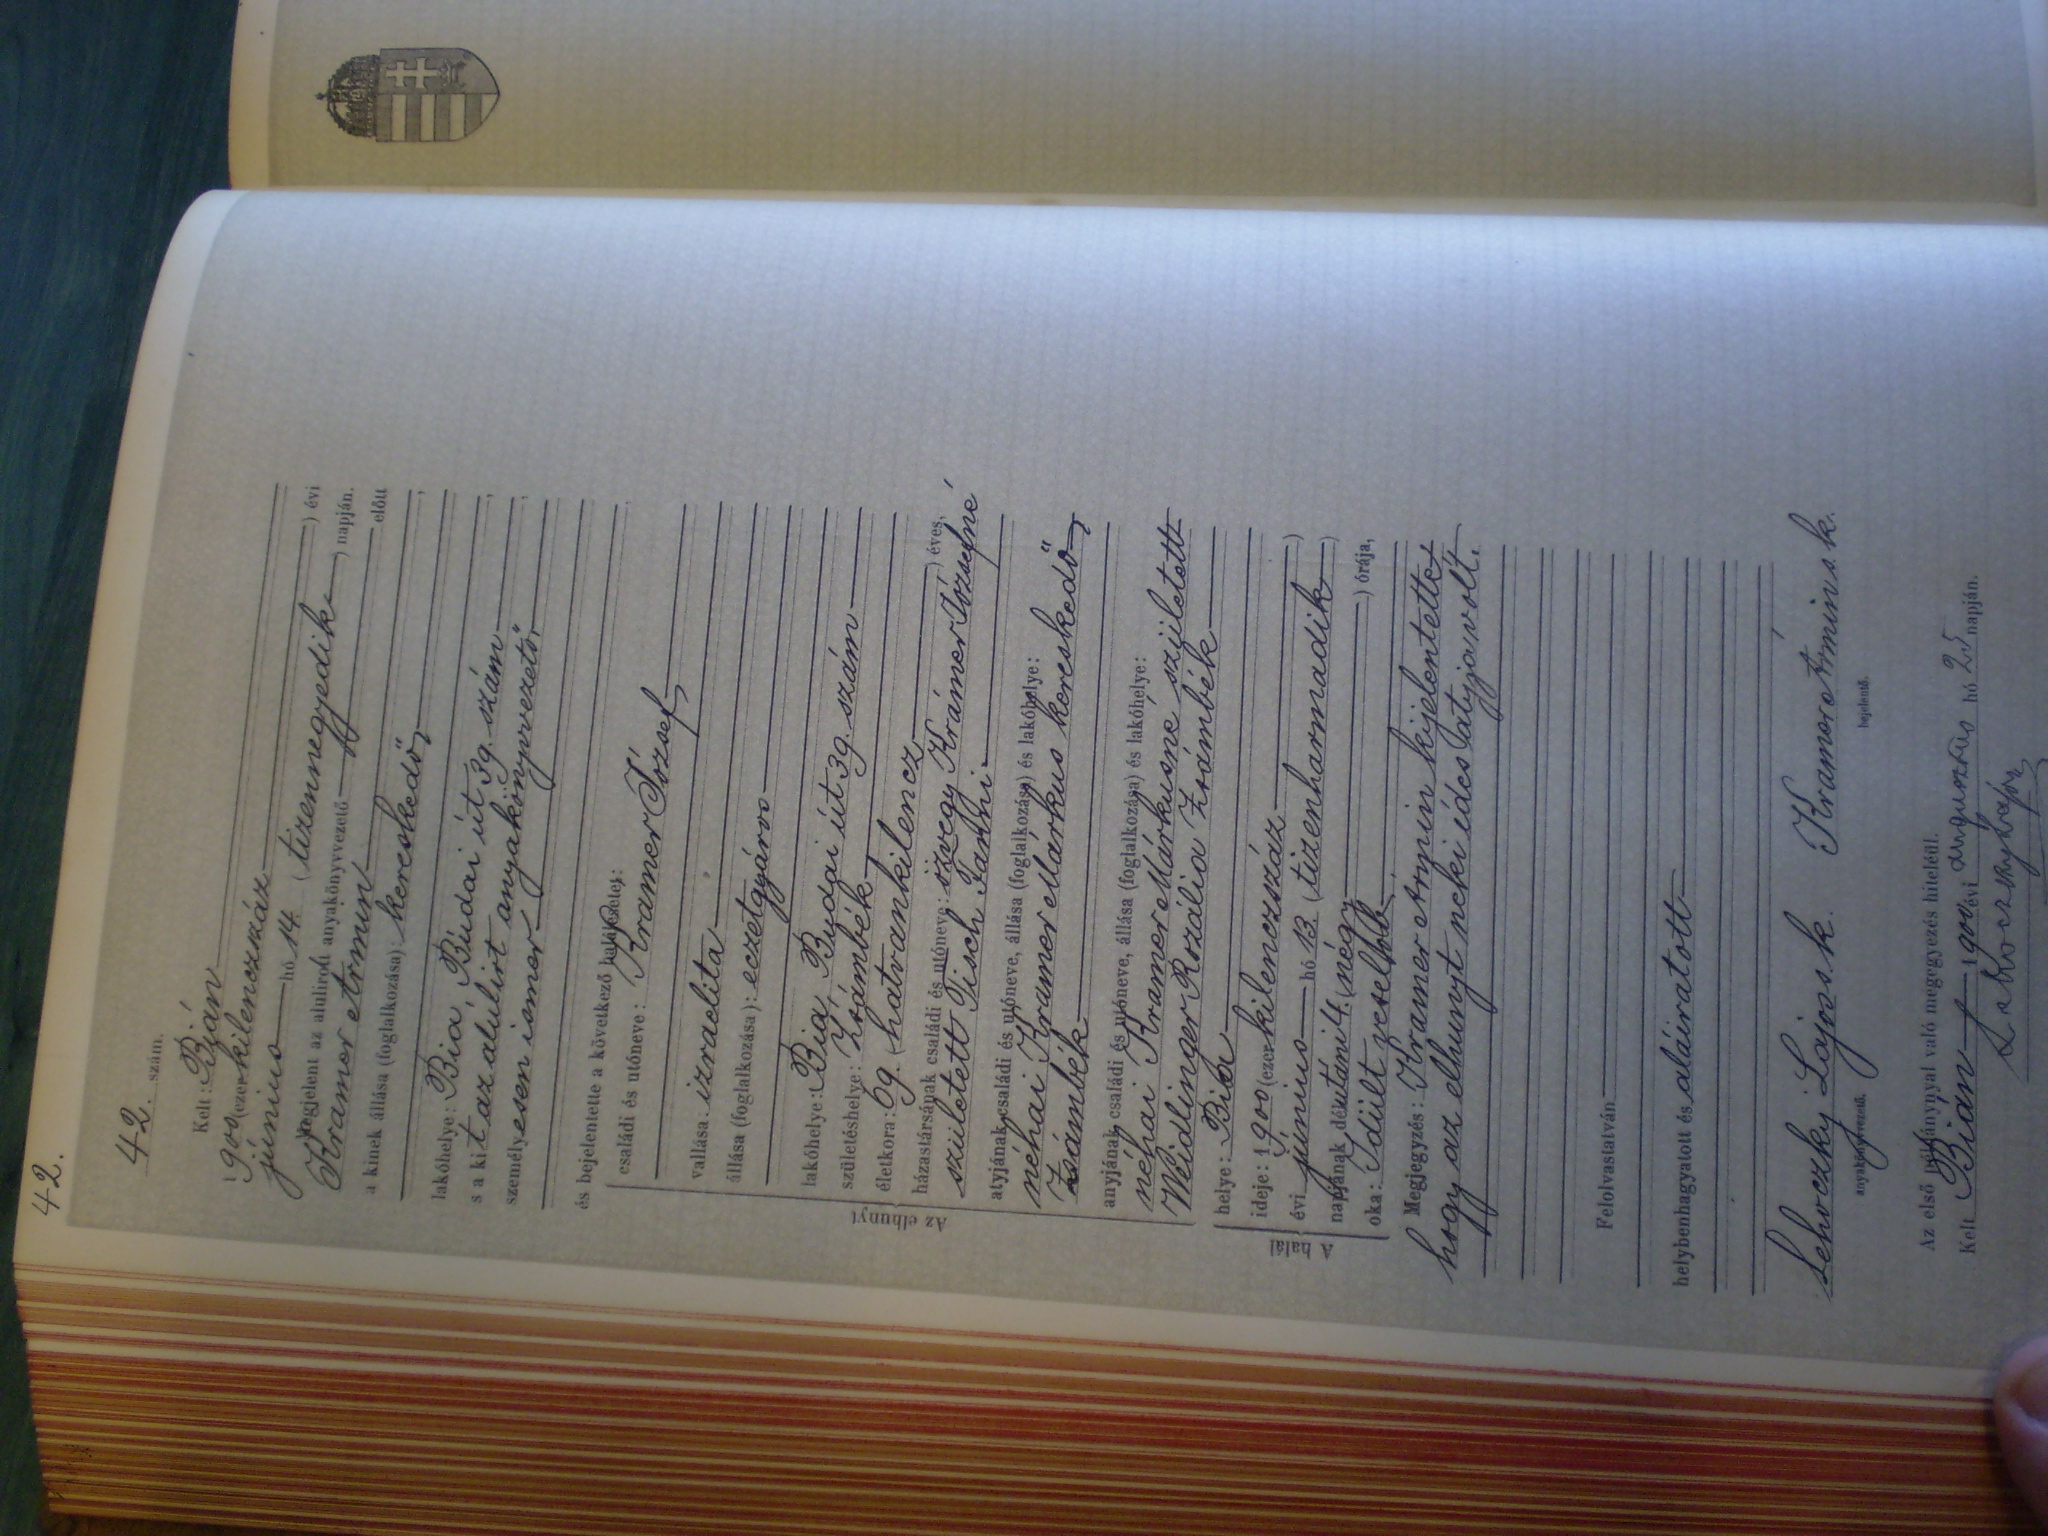 42.
42. szám.
Kelt: Bián
1900 (ezer kilenczszáz
) évi
június hó 14. (tizennegyedik ) napján.
Megjelent az alulirott anyakönyvvezető előtt
Kramer Ármin
a kinek állása (foglalkozása): kereskedő,
lakóhelye: Bia, Budai út 39. szám,
s a kit az alulirt anyakönyvvezető,
személyesen ismer
és bejelentette a következő halálesetet:
Az elhunyt
családi és utóneve: Kramer József,
vallása: izraelita
állása (foglalkozása): eczetgyáros
lakóhelye: Bia, Budai út 39. szám
születéshelye: Zsámbék
életkora: 69. (hatvankilencz ) éves,
házastársának családi és utóneve: özvegy Krámer Józsefné
született Fisch Fanni
atyjának családi és utóneve, állása (foglalkozása) és lakóhelye:
néhai Kramer Márkus kereskedő,
Zsámbék
anyjának családi és utóneve, állása (foglalkozása) és lakóhelye:
néhai Kramer Márkusné született
Weidlinger Rozália Zsámbék
A halál
helye: Bia
ideje: 1900 (ezer kilenczszáz )
évi június hó 13 (tizenharmadik )
napjának délutáni 4. (négy ) órája,
oka: Idült veselob
Megjegyzés: Kramer Armin kijelentette,
hogy az elhunyt neki édes atyja volt.
Felolvastatván
helybenhagyatott és aláiratott
Lehoczky Lajos s. k. Kramer Ármin s. k.
anyakönyvvezető. bejelentő.
Az első példánynyal való megegyezés hiteléül.
Kelt Bián 1900 évi augusztus hó 25 napján.